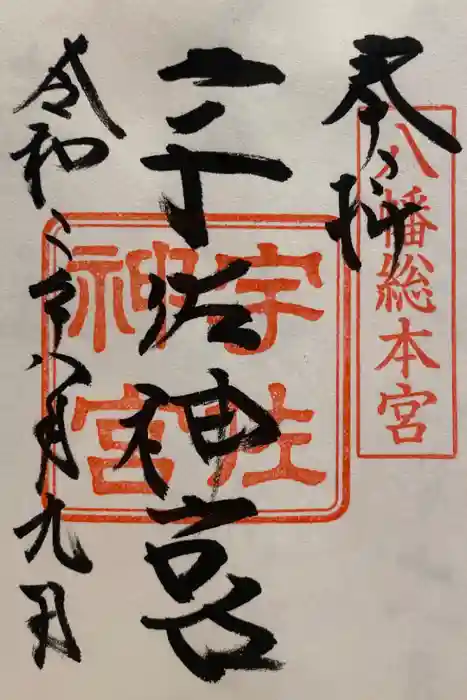 奉拝
八幡総本宮
宇佐神宮
宇佐神宮
令和二年八月九日